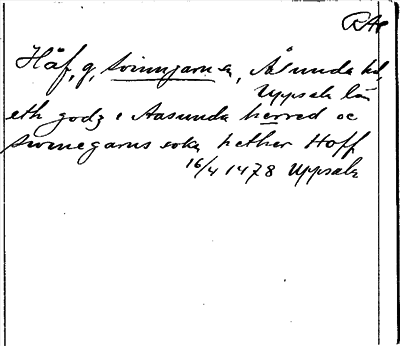 RAp
Håf, g, Svinnegarn sn, Åsunda hd,
Uppsala län
eth godz i Aasunda herred oc
swinegarns sokn hether Hoff
16/4 1478 Uppsala